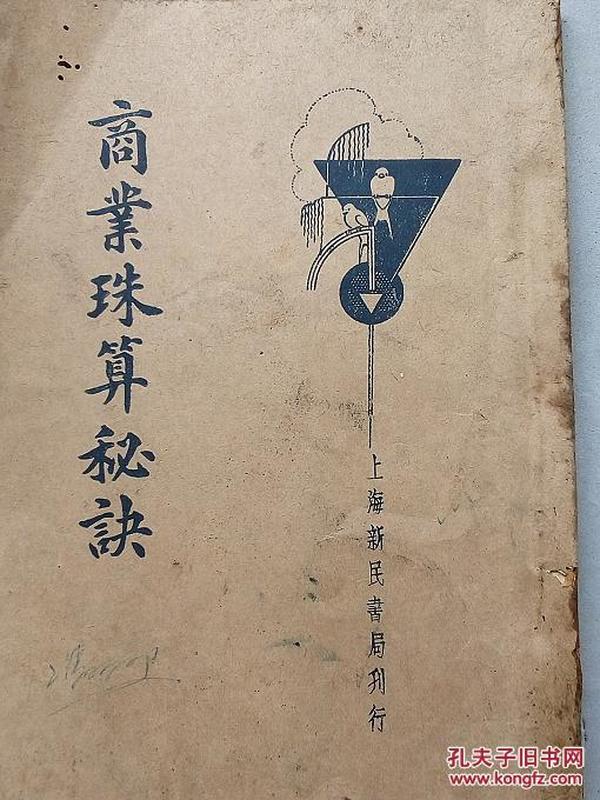 商業珠算秘訣
上海新民書局刊行
孔夫子旧书网
www.kongfz.com